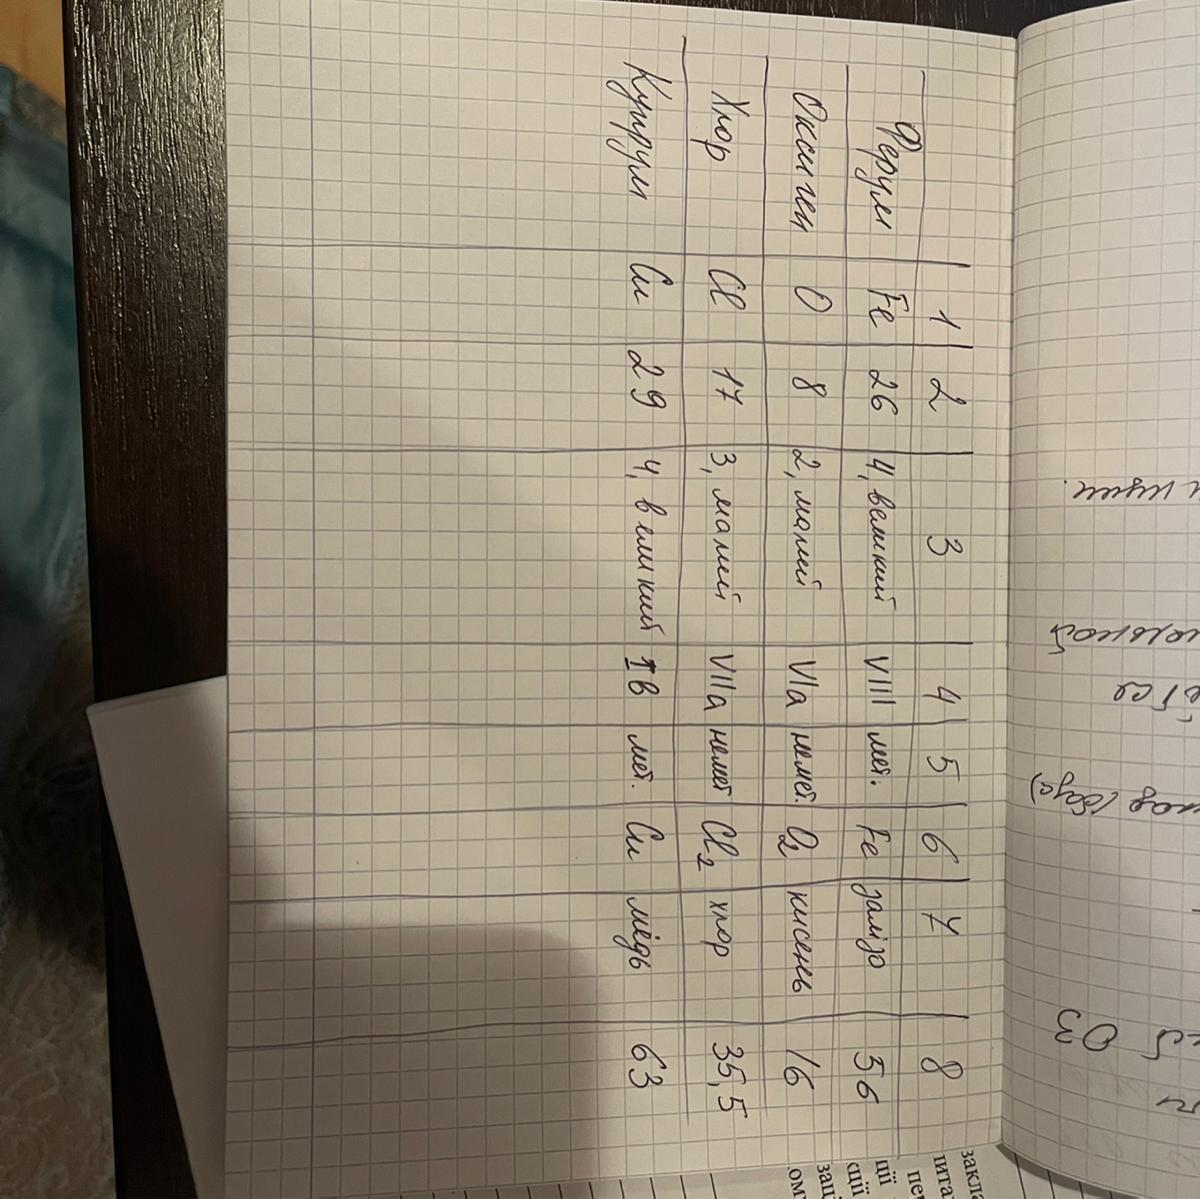 1 2 3 4 5 6 7 8
Ферум Fe 26 4, великий VIII мет. Fe залізо 56
Оксиген O 8 2, малий VIa немет. O2 кисень 16
Хлор Cl 17 3, малий VIIa немет Cl2 хлор 35,5
Купрум Cu 29 4, великий Iв мет. Cu мідь 63
ОЗ
закла
пита
пе
пії
кції
заці
ом